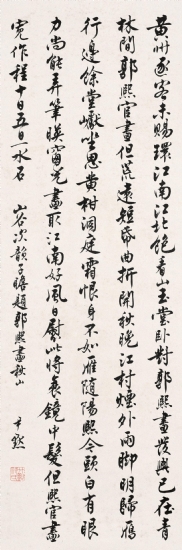 黄州逐客未赐環江南江北飽看山玉堂卧對郭熙畫發興已在青
林間郭熙官畫但荒遠短紙曲折開秋晚江村煙外雨脚明歸雁
行邊餘疊巘坐思黄柑洞庭霜恨身不如雁隨陽熙今頭白有眼
力尚能弄筆映窗光畫取江南好風日慰此將衰鏡中髮但熙官畫
寬作程十日五日一水石
山谷次韻子瞻題郭熙畫秋山
尹默